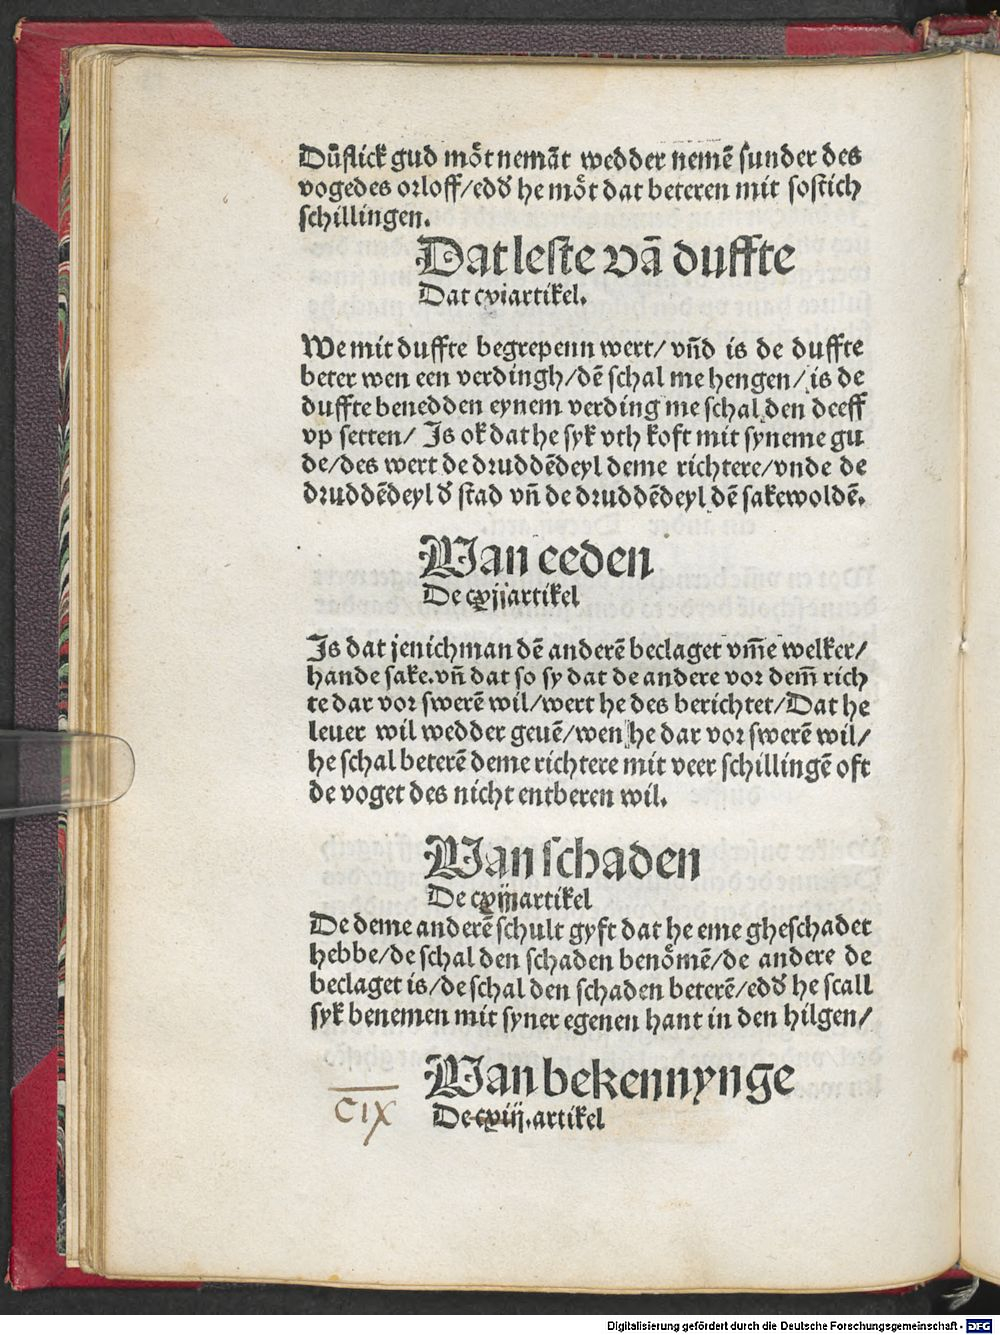 Dűſlick gud mȯt nemāt wedder nemē ſunder des
vogedes orloff/edð he mȯt dat beteren mit ſoſtich
ſchillingen.
Dat leſte vā duffte
Dat cvi artikel.
We mit duffte begrepenn wert/ vn̄d is de duffte
beter wen een verdingh/dē ſchal me hengen/ is de
duffte benedden eynem verding me ſchal den deeff
vp ſetten/ Is ok dat he ſyk vth koft mit ſyneme gu
de/des wert de druddēdeyl deme richtere/vnde de
druddēdeyl ð ſtad vn̄ de druddēdeyl dē ſakewoldē.
Van eeden
De cvij artikel
Is dat jenich man dē anderē beclaget vm̄e welker/
hande ſake.vn̄ dat ſo ſy dat de andere vor dem̄ rich
te dar vor ſwerē wil/wert he des berichtet/Dat he
leuer wil wedder geuē/wen he dar vor ſwerē wil/
he ſchal beterē deme richtere mit veer ſchillingē oft
de voget des nicht entberen wil.
Van ſchaden
De cviij artikel
De deme anderē ſchult gyft dat he eme gheſchadet
hebbe/de ſchal den ſchaden benȯmē/de andere de
beclaget is/de ſchal den ſchaden beterē/edð he ſcall
ſyk benemen mit ſyner egenen hant in den hilgen/
Van bekennynge
CIX De cviij. artikel
Digitalisierung gefördert durch die Deutsche Forschungsgemeinschaft - DFG